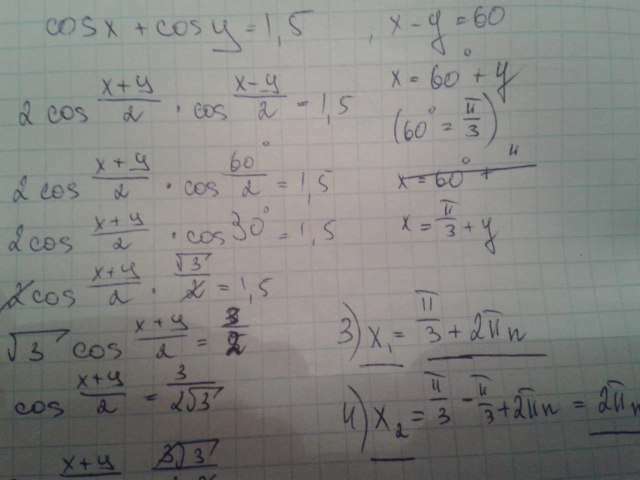 cosx + cosy = 1,5 , x - y = 60°
2 cos (x+y)/2 · cos (x-y)/2 = 1,5
x = 60° + y
(60° = π/3)
2 cos (x+y)/2 · cos 60°/2 = 1,5
x = 60° +
2 cos (x+y)/2 · cos 30° = 1,5
x = π/3 + y
2 cos (x+y)/2 · √3/2 = 1,5
√3 cos (x+y)/2 = 3/2
3) x₁ = π/3 + 2πn
cos (x+y)/2 = 3/2√3
4) x₂ = π/3 - π/3 + 2πn = 2πn
x+y 3√3